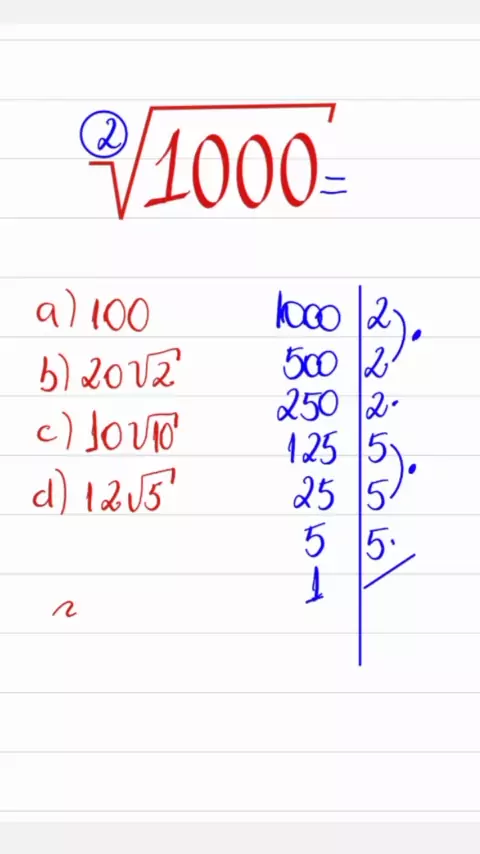 2√1000=
a) 100
b) 20√2
c) 10√10
d) 12√5
1000 | 2
500 | 2
250 | 2.
125 | 5
25 | 5
5 | 5.
1